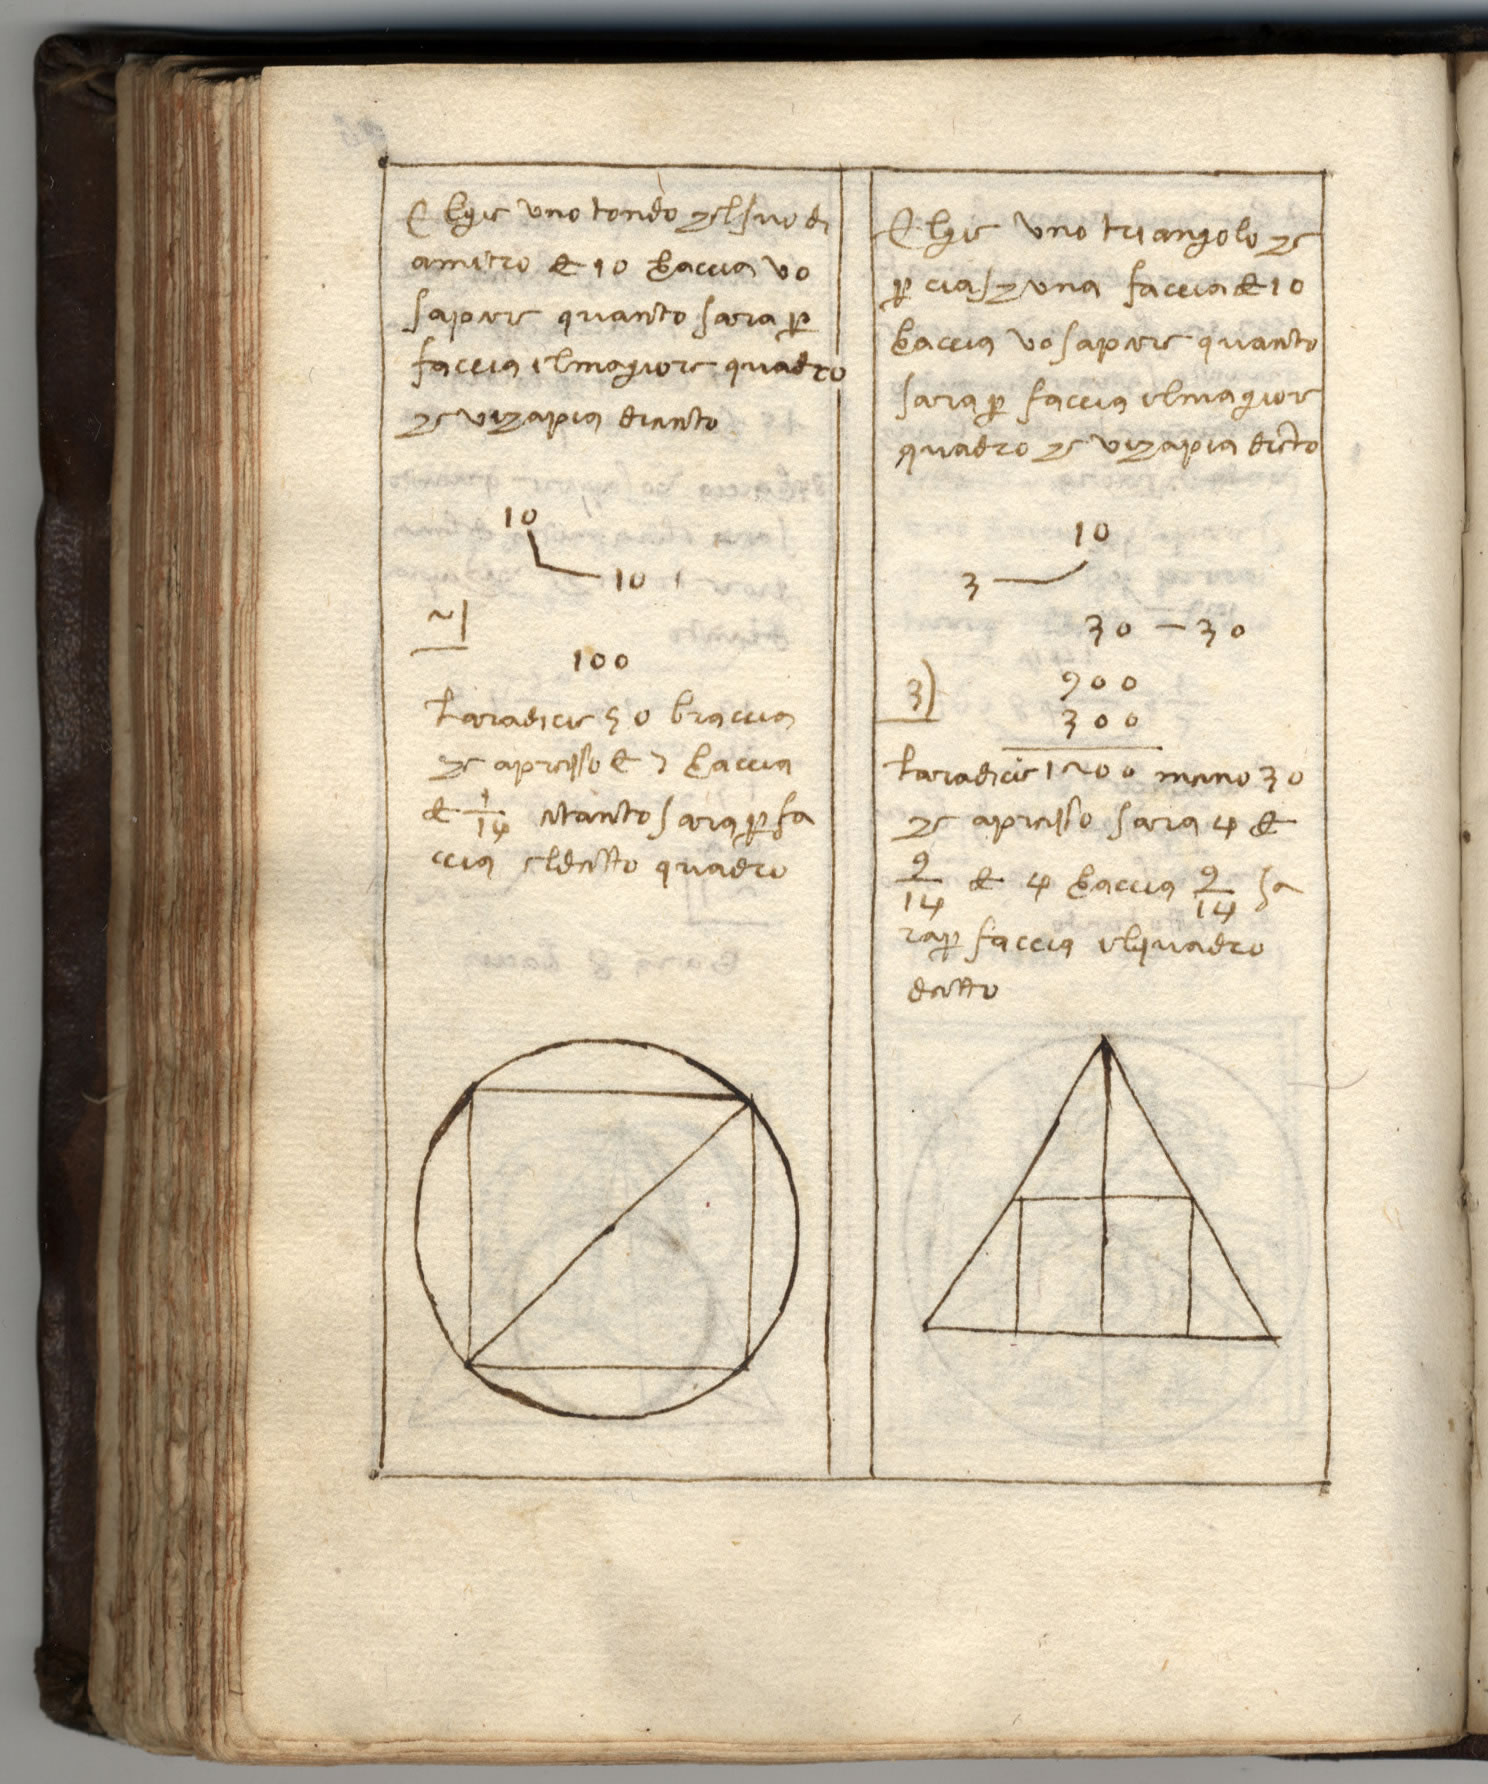 Elgie uno tondo zelsuo di
amitro è 10 braccia vo
sapere quanto sara p
faccia elmagiore quadro
ze vizapia drento
10
10
2
100
La radicie 50 braccia
ze apresso è 7 braccia
è 1/14 etanto sara p fa
ccia eldetto quadro
Elgie uno triangolo ze
p ciaszuna faccia è 10
braccia vo sapere quanto
sara p faccia elmagior
quadro ze vizapia dreto
10
3
30 — 30
3
900
300
La radicie 1200 meno 30
ze apresso sara 4 è
9/14 è 4 braccia 9/14 sa
ra p faccia elquadro
detto